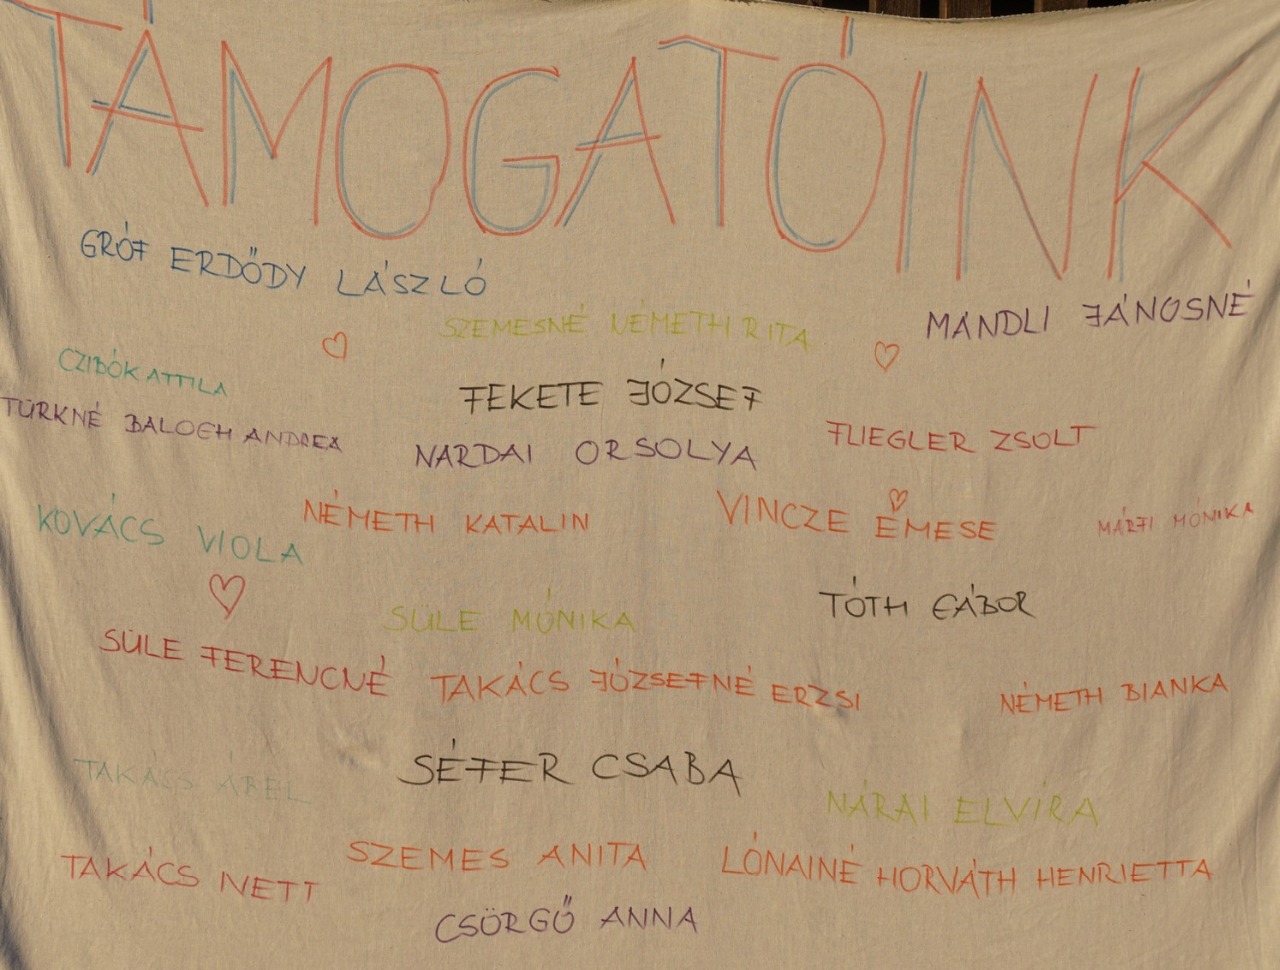 TÁMOGATÓINK
GRÓF ERDŐDY LÁSZLÓ
SZEMESNÉ NÉMETH RITA
MÁNDLI JÁNOSNÉ
CZIBÓK ATTILA
FEKETE JÓZSEF
TÜRKNÉ BALOGH ANDREA
NÁRDAI ORSOLYA
FLIEGLER ZSOLT
KOVÁCS VIOLA
NÉMETH KATALIN
VINCZE EMESE
MÁRFI MÓNIKA
SÜLE MÓNIKA
TÓTH GÁBOR
SÜLE FERENCNÉ
TAKÁCS JÓZSEFNÉ ERZSI
NÉMETH BIANKA
TAKÁCS ÁBEL
SÉFER CSABA
NÁRAI ELVIRA
TAKÁCS NETT
SZEMES ANITA
LÓNAINÉ HORVÁTH HENRIETTA
CSÖRGŐ ANNA